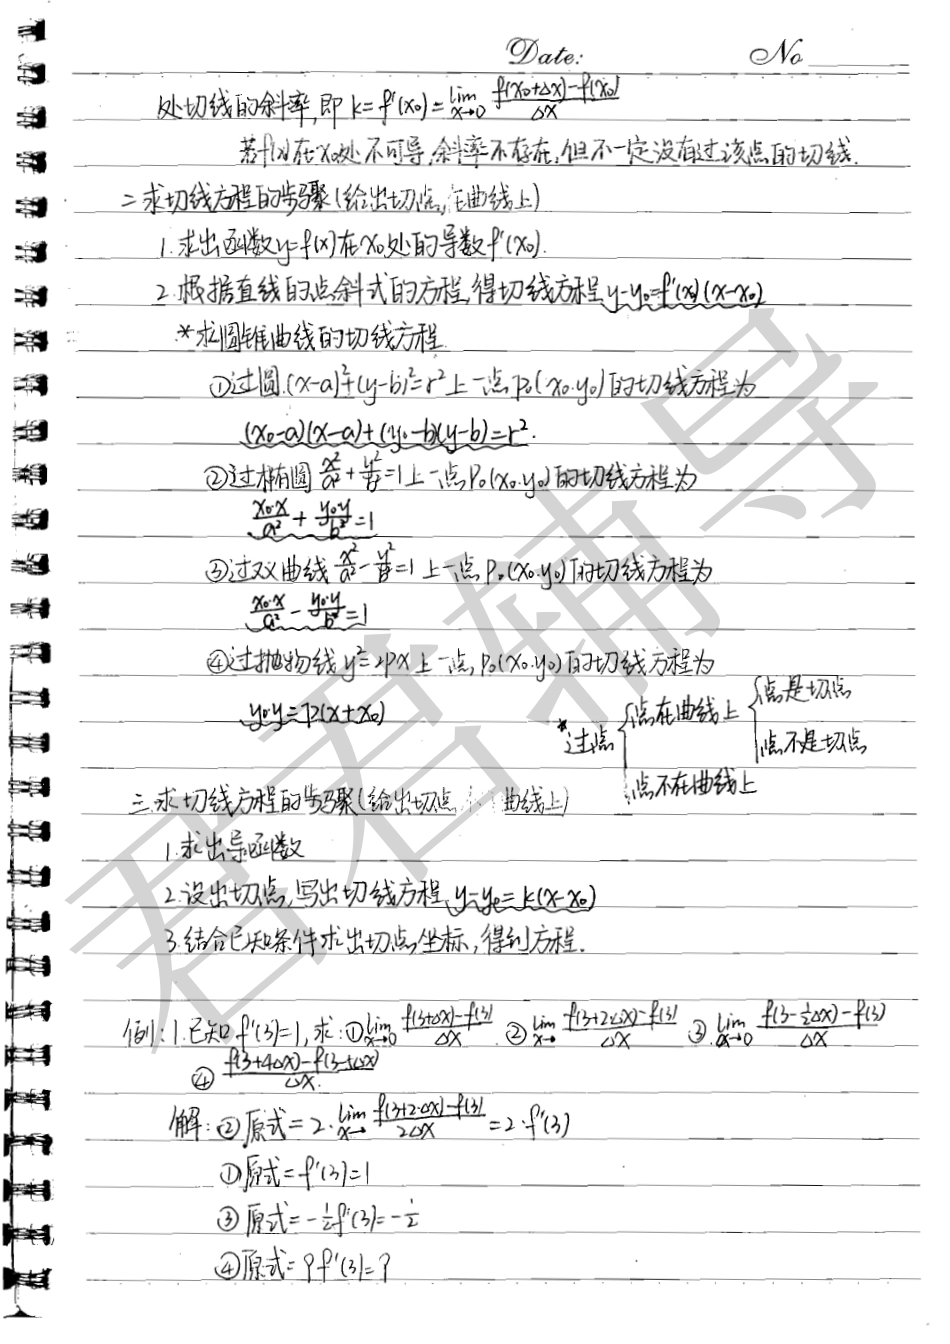 Date: No
处切线的斜率,即 k=f'(x₀)=lim x→0 f(x₀+Δx)-f(x₀)/Δx
若f(x)在x₀处不可导,斜率不存在,但不一定没有过该点的切线.
二.求切线方程的步骤(给出切点,在曲线上)
1.求出函数y=f(x)在x₀处的导数f'(x₀).
2.根据直线的点斜式的方程,得切线方程 y-y₀=f'(x)(x-x₀)
*求圆锥曲线的切线方程
①过圆(x-a)²+(y-b)²=r²上一点P₀(x₀.y₀)的切线方程为
(x₀-a)(x-a)+(y₀-b)(y-b)=r².
②过椭圆 x²/a²+y²/b²=1上一点P₀(x₀.y₀)的切线方程为
x₀·x/a²+y₀·y/b²=1
③过双曲线 x²/a²-y²/b²=1上一点P₀(x₀.y₀)的切线方程为
x₀·x/a²-y₀·y/b²=1
④过抛物线y²=2px上一点,P₀(x₀.y₀)的切线方程为
y₀y=p(x+x₀)
*过点{点在曲线上{点是切点
点不是切点
点不在曲线上
三.求切线方程的步骤(给出切点 曲线上)
1.求出导函数
2.设出切点,写出切线方程 y-y₀=k(x-x₀)
3.结合已知条件求出切点坐标,得到方程.
例:1.已知f'(3)=1,求:①lim x→0 f(3+Δx)-f(3)/Δx ②lim x→ f(3+2Δx)-f(3)/Δx ③lim x→0 f(3-½Δx)-f(3)/Δx
④ f(3+4Δx)-f(3-5Δx)/Δx.
解:②原式=2·lim x→ f(3+2·Δx)-f(3)/2Δx=2·f'(3)
①原式=f'(3)=1
③原式=-½f'(3)=-½
④原式=9f'(3)=9
君君辅导